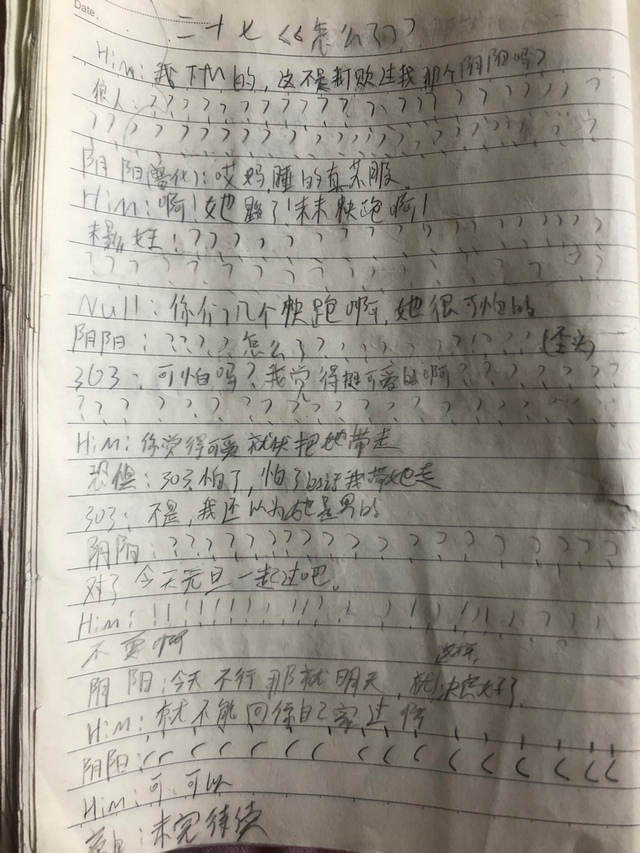 Date.
二十七《怎么了》?
Him:我TM的,这不是打败过我那个阴阳吗?
他人:? ? ? ? ? ? ? ? ? ? ? ? ? ? ? ? ? ? ?
? ? ? ? ? ? ? ? ? ? ? ? ? ? ? ? ? ? ? ?
阴阳(雾化):哎妈,睡的真苏服
Him:啊!她醒了!未来快跑啊!
:? ? ? ? ? ? ? ? ? ? ? ? ? ? ?
? ? ? ? ? ? ? ? ? ? ? ? ? ? ? ?
Null:你们几个快跑啊,她很可怕的
阴阳:? ? ? ?怎么了? ? ? ? ? ? ? ? ? ? (歪头)
303:可怕吗?我觉得挺可爱的啊? ? ? ? ? ? ?
? ? ? ? ? ? ? ? ? ? ? ? ? ? ? ? ? ? ?
Him:你觉得可爱就快把她带走
恐惧:303怕了,怕了的话我带她走
303:不是,我还以为她是男的
阴阳:? ? ? ? ? ? ? ? ? ? ? ? ? ? ? ? ? ?
对了今天元旦一起过吧。
Him:! ! ! ! ! ! ! ! ! ! ! ! ! ! ! ! ! !
不要啊
阴阳:今天不行那就明天,就这样,决定好了
Him:就不能回你自己家过
阴阳:( ( ( ( ( ( ( ( ( ( ( ( ( ( ( ( (
Him:可,可以
:未完待续